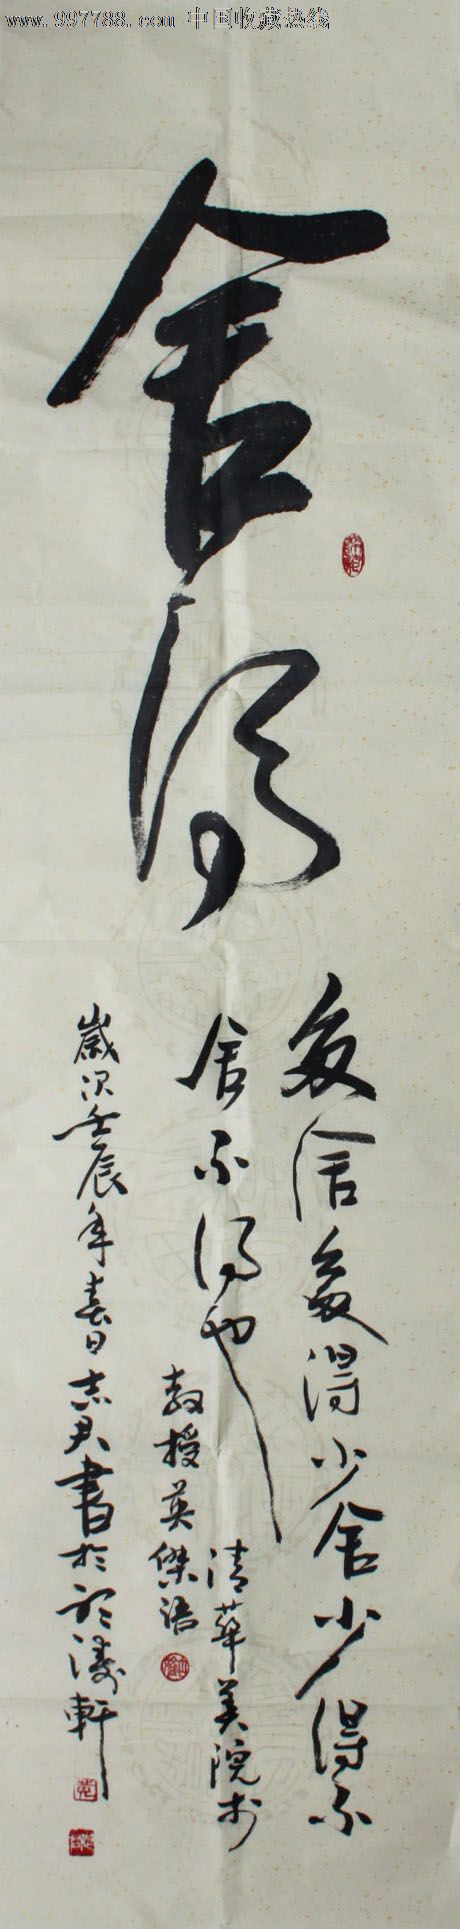 www.997788.com 中国收藏热线
舍得
多舍多得少舍少得不
舍不得也
清華美院
教授英傑语
歲次壬辰年春日志君書於 涛軒